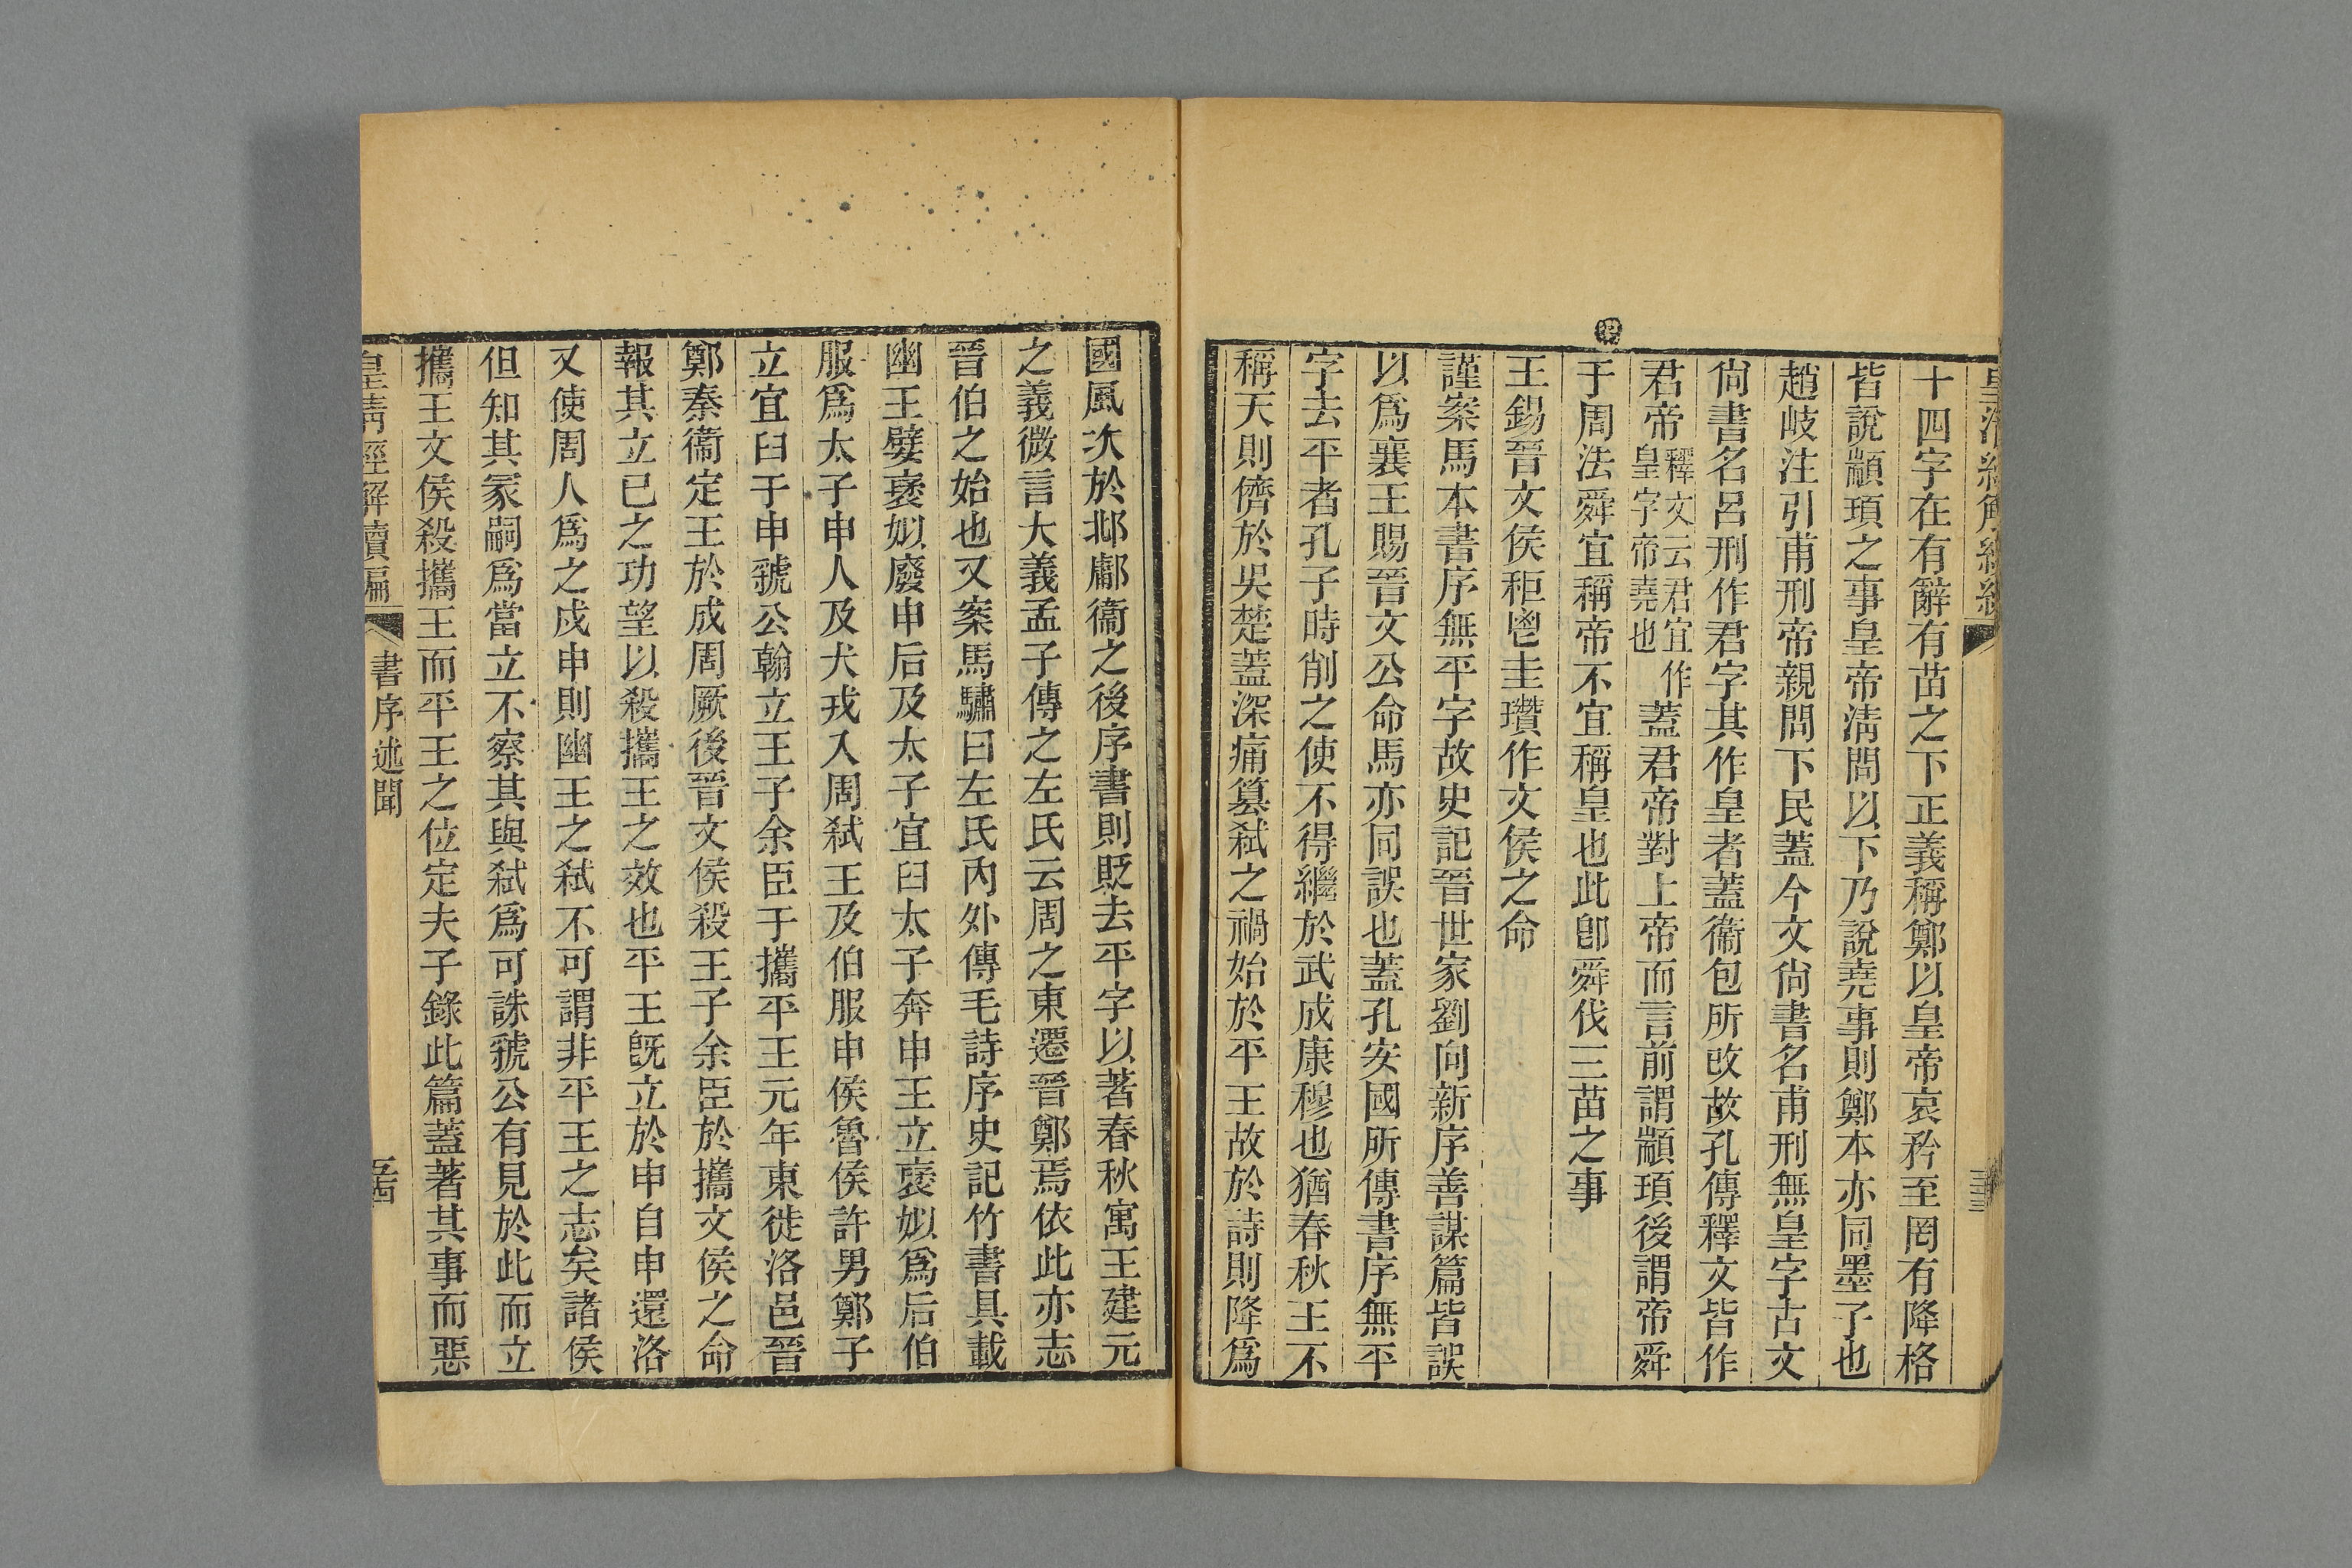 十四字在有辭有苗之下正義稱鄭以皇帝哀矜至罔有降格
皆說顓頊之事皇帝淸問以下乃說堯事則鄭本亦同墨子也
趙岐注引甫刑帝親問下民蓋今文尙書名甫刑無皇字古文
尙書名呂刑作君字其作皇者蓋衞包所改故孔傳釋文皆作
君帝釋文云君宜作皇字帝堯也蓋君帝對上帝而言前謂顓頊後謂帝舜
于周法舜宜稱帝不宜稱皇也此卽舜伐三苗之事
王錫晉文侯秬鬯圭瓚作文侯之命
謹案馬本書序無平字故史記晉世家劉向新序善謀篇皆誤
以爲襄王賜晉文公命馬亦同誤也蓋孔安國所傳書序無平
字去平者孔子時削之使不得繼於武成康穆也猶春秋王不
稱天則儕於吳楚蓋深痛簒弑之禍始於平王故於詩則降爲
國風次於邶鄘衞之後序書則貶去平字以著春秋寓王建元
之義微言大義孟子傳之左氏云周之東遷晉鄭焉依此亦志
晉伯之始也又案馬驌曰左氏內外傳毛詩序史記竹書具載
幽王嬖褒姒廢申后及太子宜臼太子奔申王立褒姒爲后伯
服爲太子申人及犬戎入周弑王及伯服申侯魯侯許男鄭子
立宜臼于申虢公翰立王子余臣于攜平王元年東徙洛邑晉
鄭秦衞定王於成周厥後晉文侯殺王子余臣於攜文侯之命
報其立已之功望以殺攜王之效也平王旣立於申自申還洛
又使周人爲之戍申則幽王之弑不可謂非平王之志矣諸侯
但知其冢嗣爲當立不察其與弑爲可誅虢公有見於此而立
攜王文侯殺攜王而平王之位定夫子錄此篇蓋著其事而惡
皇淸經解續編
書序述聞